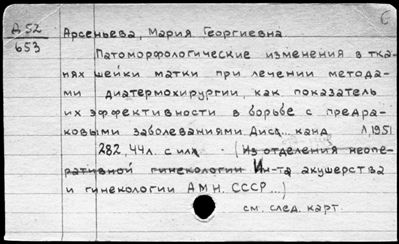 С
Д 52
653
Арсеньева, Мария Георгиевна
Патоморфологические изменения в тка-
нях шейки матки при лечении метода-
ми диатермохирургии, как показатель
их эффективности в борьбе с предра-
ковыми заболеваниями. Дисс... канд. Л, 1951.
282, 44 л. с илл. (Из отделения неопе-
ративной гинекологии Ин-та акушерства
и гинекологии АМН СССР...)
см. след. карт.